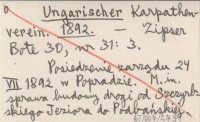 Ungarischer Karpathen-
verein. 1892. — Zipser
Bote 30, nr 31: 3.
Posiedzenie zarządu 24
VII 1892 w Popradzie. M. in.
sprawa budowy drogi od Szczyrb-
skiego Jeziora do Podbańskiej.